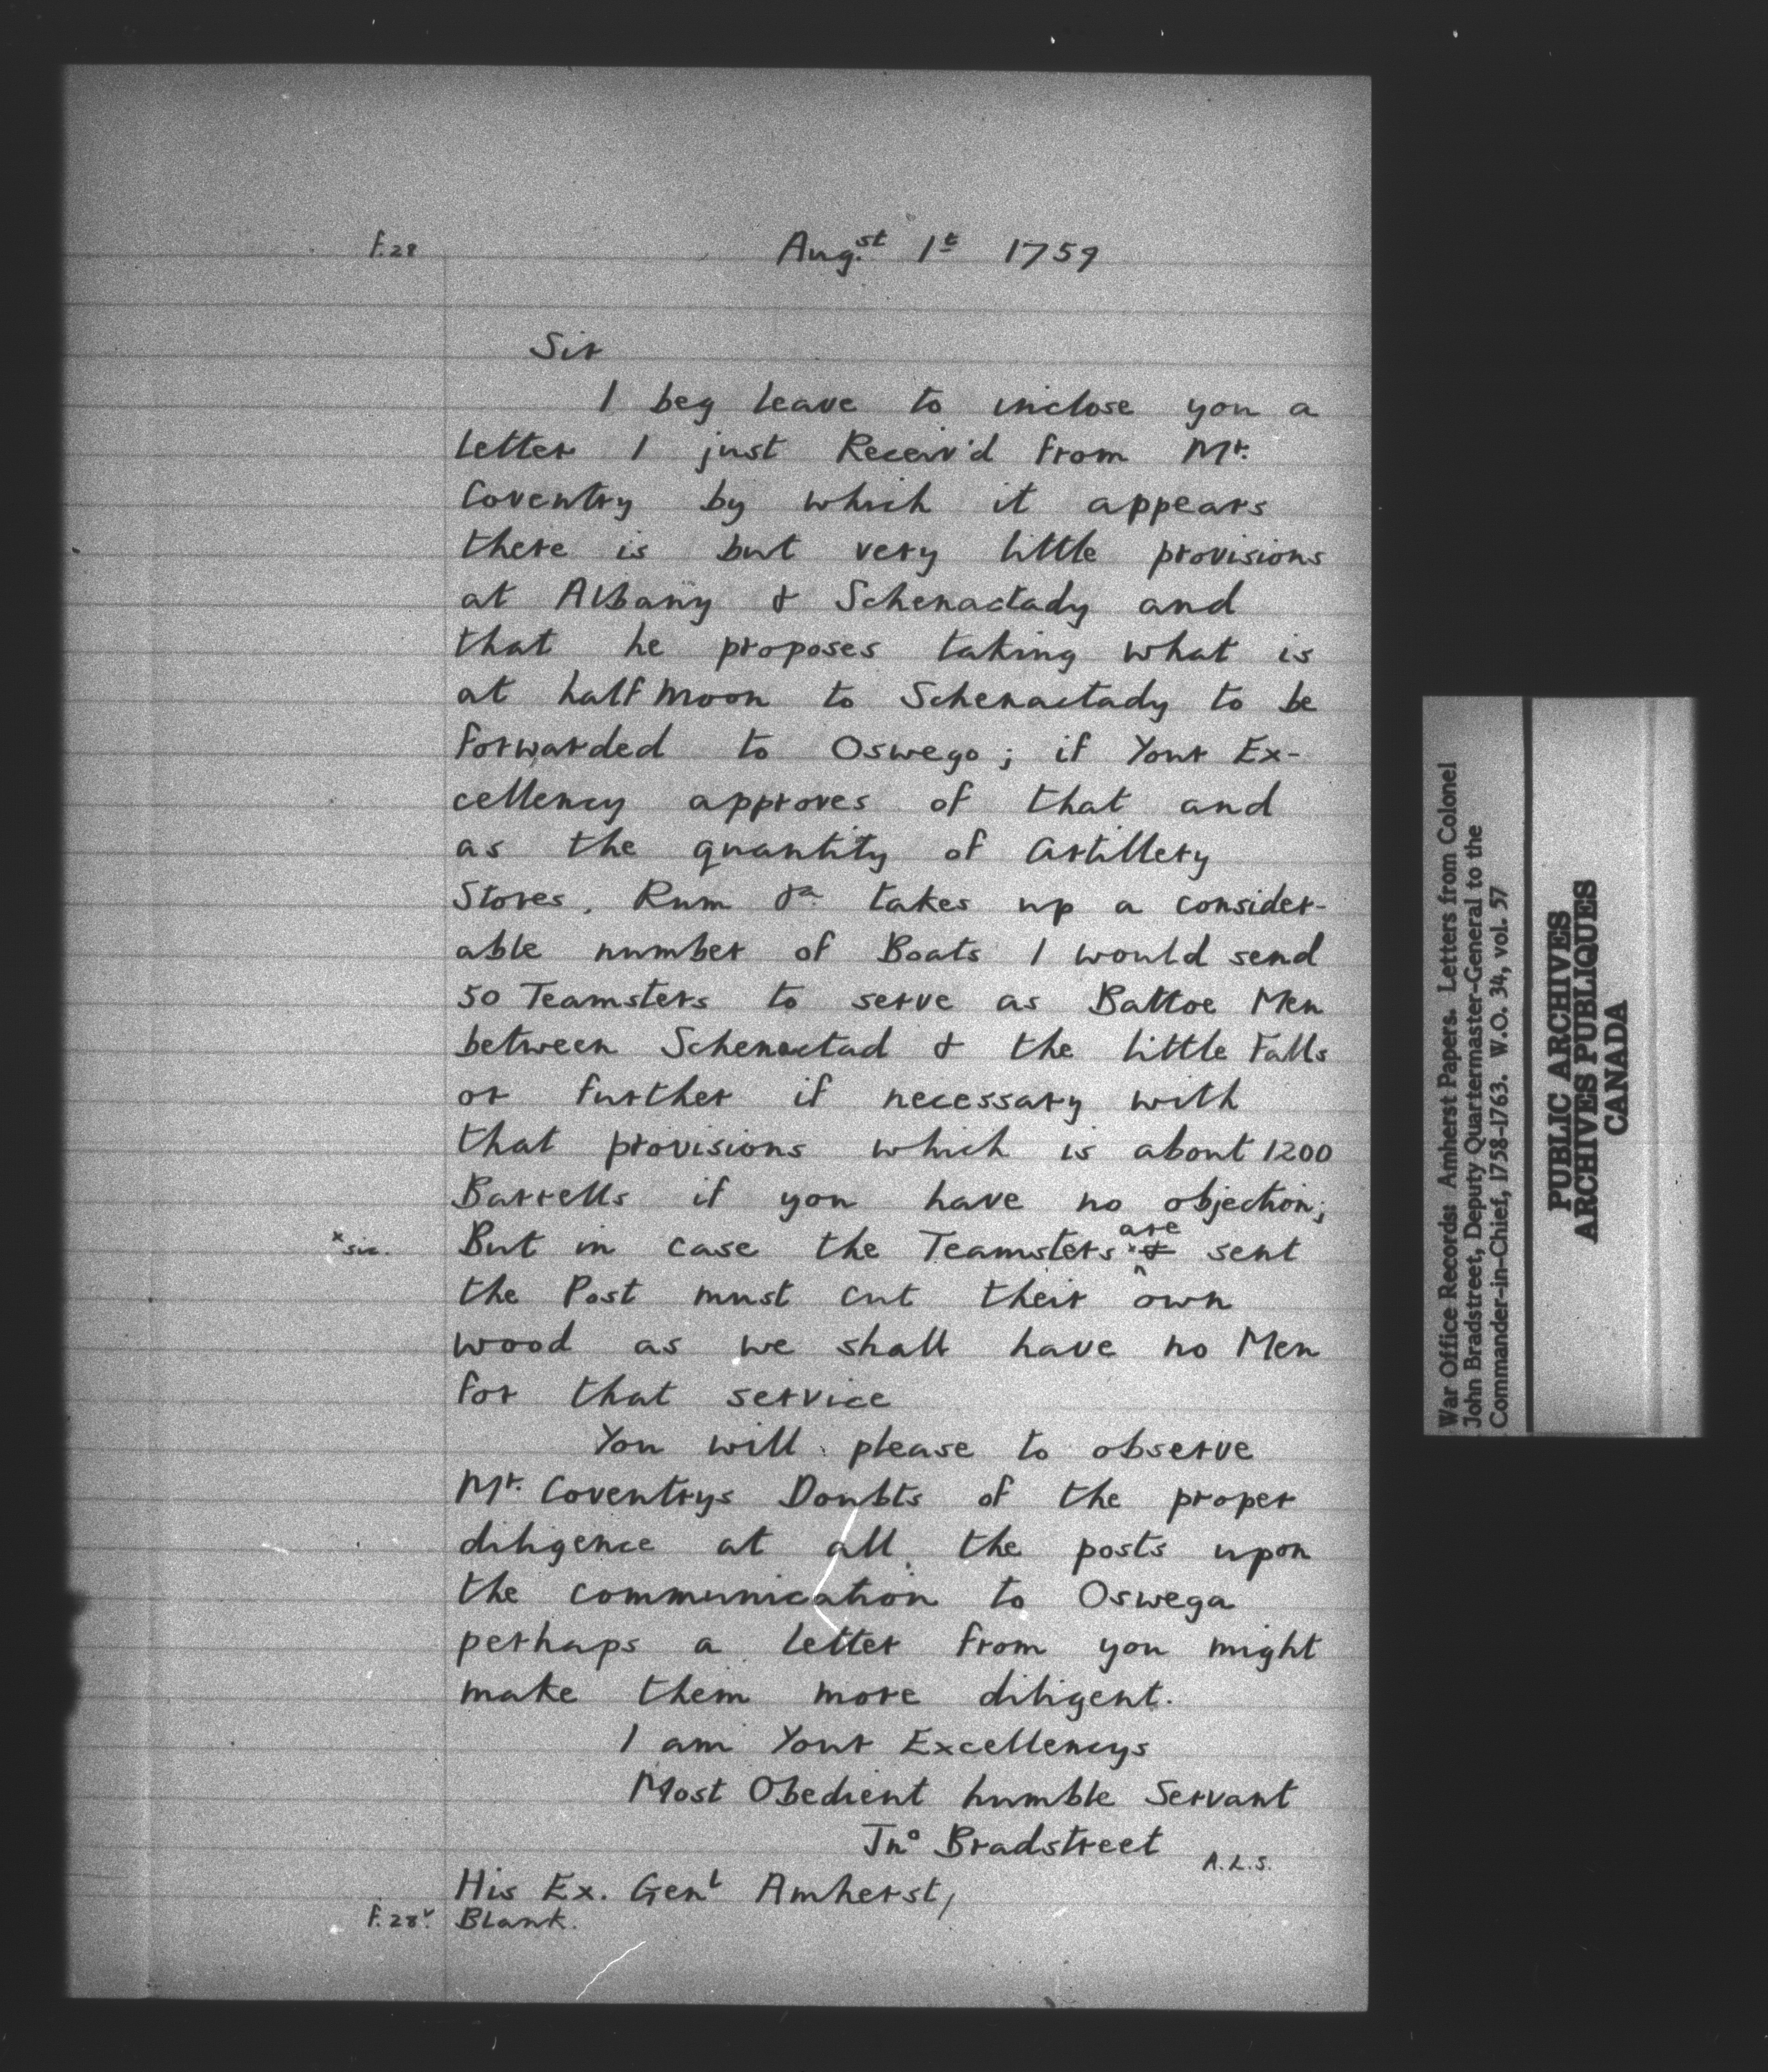 f.28
Aug.st 1t 1759
Sir
I beg leave to inclose you a
letter I just Receiv'd from Mr.
Coventry by which it appears
there is but very little provisions
at Albany & Schenactady and
that he proposes taking what is
at half Moon to Schenactady to be
forwarded to Oswego; if Your Ex-
cellency approves of that and
as the quantity of Artillery
Stores, Rum &a takes up a consider-
able number of Boats I would send
50 Teamsters to serve as Battoe Men
between Schenactad & the little Falls
or further if necessary with
that provisions which is about 1200
Barrells if you have no objection;
*sic. But in case the Teamsters * & are sent
the Post must cut their own
wood as we shall have no Men
for that service
You will please to observe
Mr. Coventrys Doubts of the proper
diligence at all the posts upon
the communication to Oswega
perhaps a letter from you might
make them more diligent.
I am Your Excellencys
Most Obedient humble Servant
Jno Bradstreet A.L.S.
His Ex. Genl Amherst,
f.28v. Blank.
War Office Records: Amherst Papers. Letters from Colonel
John Bradstreet, Deputy Quartermaster-General to the
Commander-in-Chief, 1758-1763. W.O. 34, vol. 57
PUBLIC ARCHIVES
ARCHIVES PUBLIQUES
CANADA